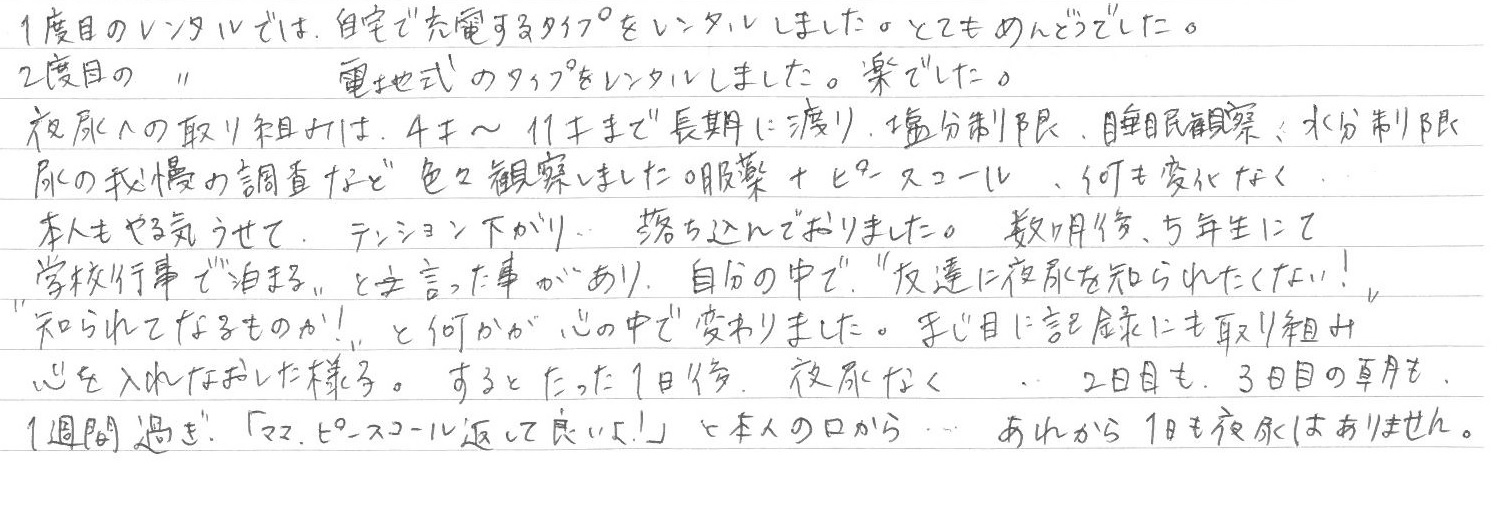 1度目のレンタルでは、自宅で充電するタイプをレンタルしました。とてもめんどうでした。
2度目の 〃 電地式のタイプをレンタルしました。楽でした。
夜尿への取り組みは、4才〜11才まで長期に渡り、塩分制限、睡眠観察、水分制限
尿の我慢の調査など色々観察しました。服薬+ピースコール、何も変化なく…
本人もやる気うせて、テンション下がり… 落ち込んでおりました。数ヶ月後、5年生にて
学校行事で"泊まる"と言った事があり、自分の中で、"友達に夜尿を知られたくない!"
"知られてなるものか!"と何かが心の中で変わりました。まじ目に記録にも取り組み
心を入れなおした様子。するとたった1日後、夜尿なく … 2日目も、3日目の朝も、
1週間過ぎ、「ママ、ピースコール返して良いよ!」と本人の口から… あれから1日も夜尿はありません。